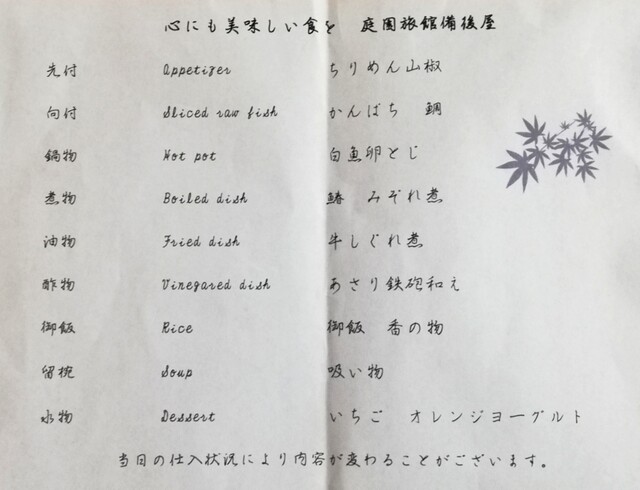 心にも美味しい食を 庭園旅館備後屋
先付 Appetizer ちりめん山椒
向付 Sliced raw fish かんぱち 鯛
鍋物 Hot pot 白魚卵とじ
煮物 Boiled dish 鰆 みぞれ煮
油物 Fried dish 牛しぐれ煮
酢物 Vinegared dish あさり鉄砲和え
御飯 Rice 御飯 香の物
留椀 Soup 吸い物
水物 Dessert いちご オレンジヨーグルト
当日の仕入状況により内容が変わることがございます。